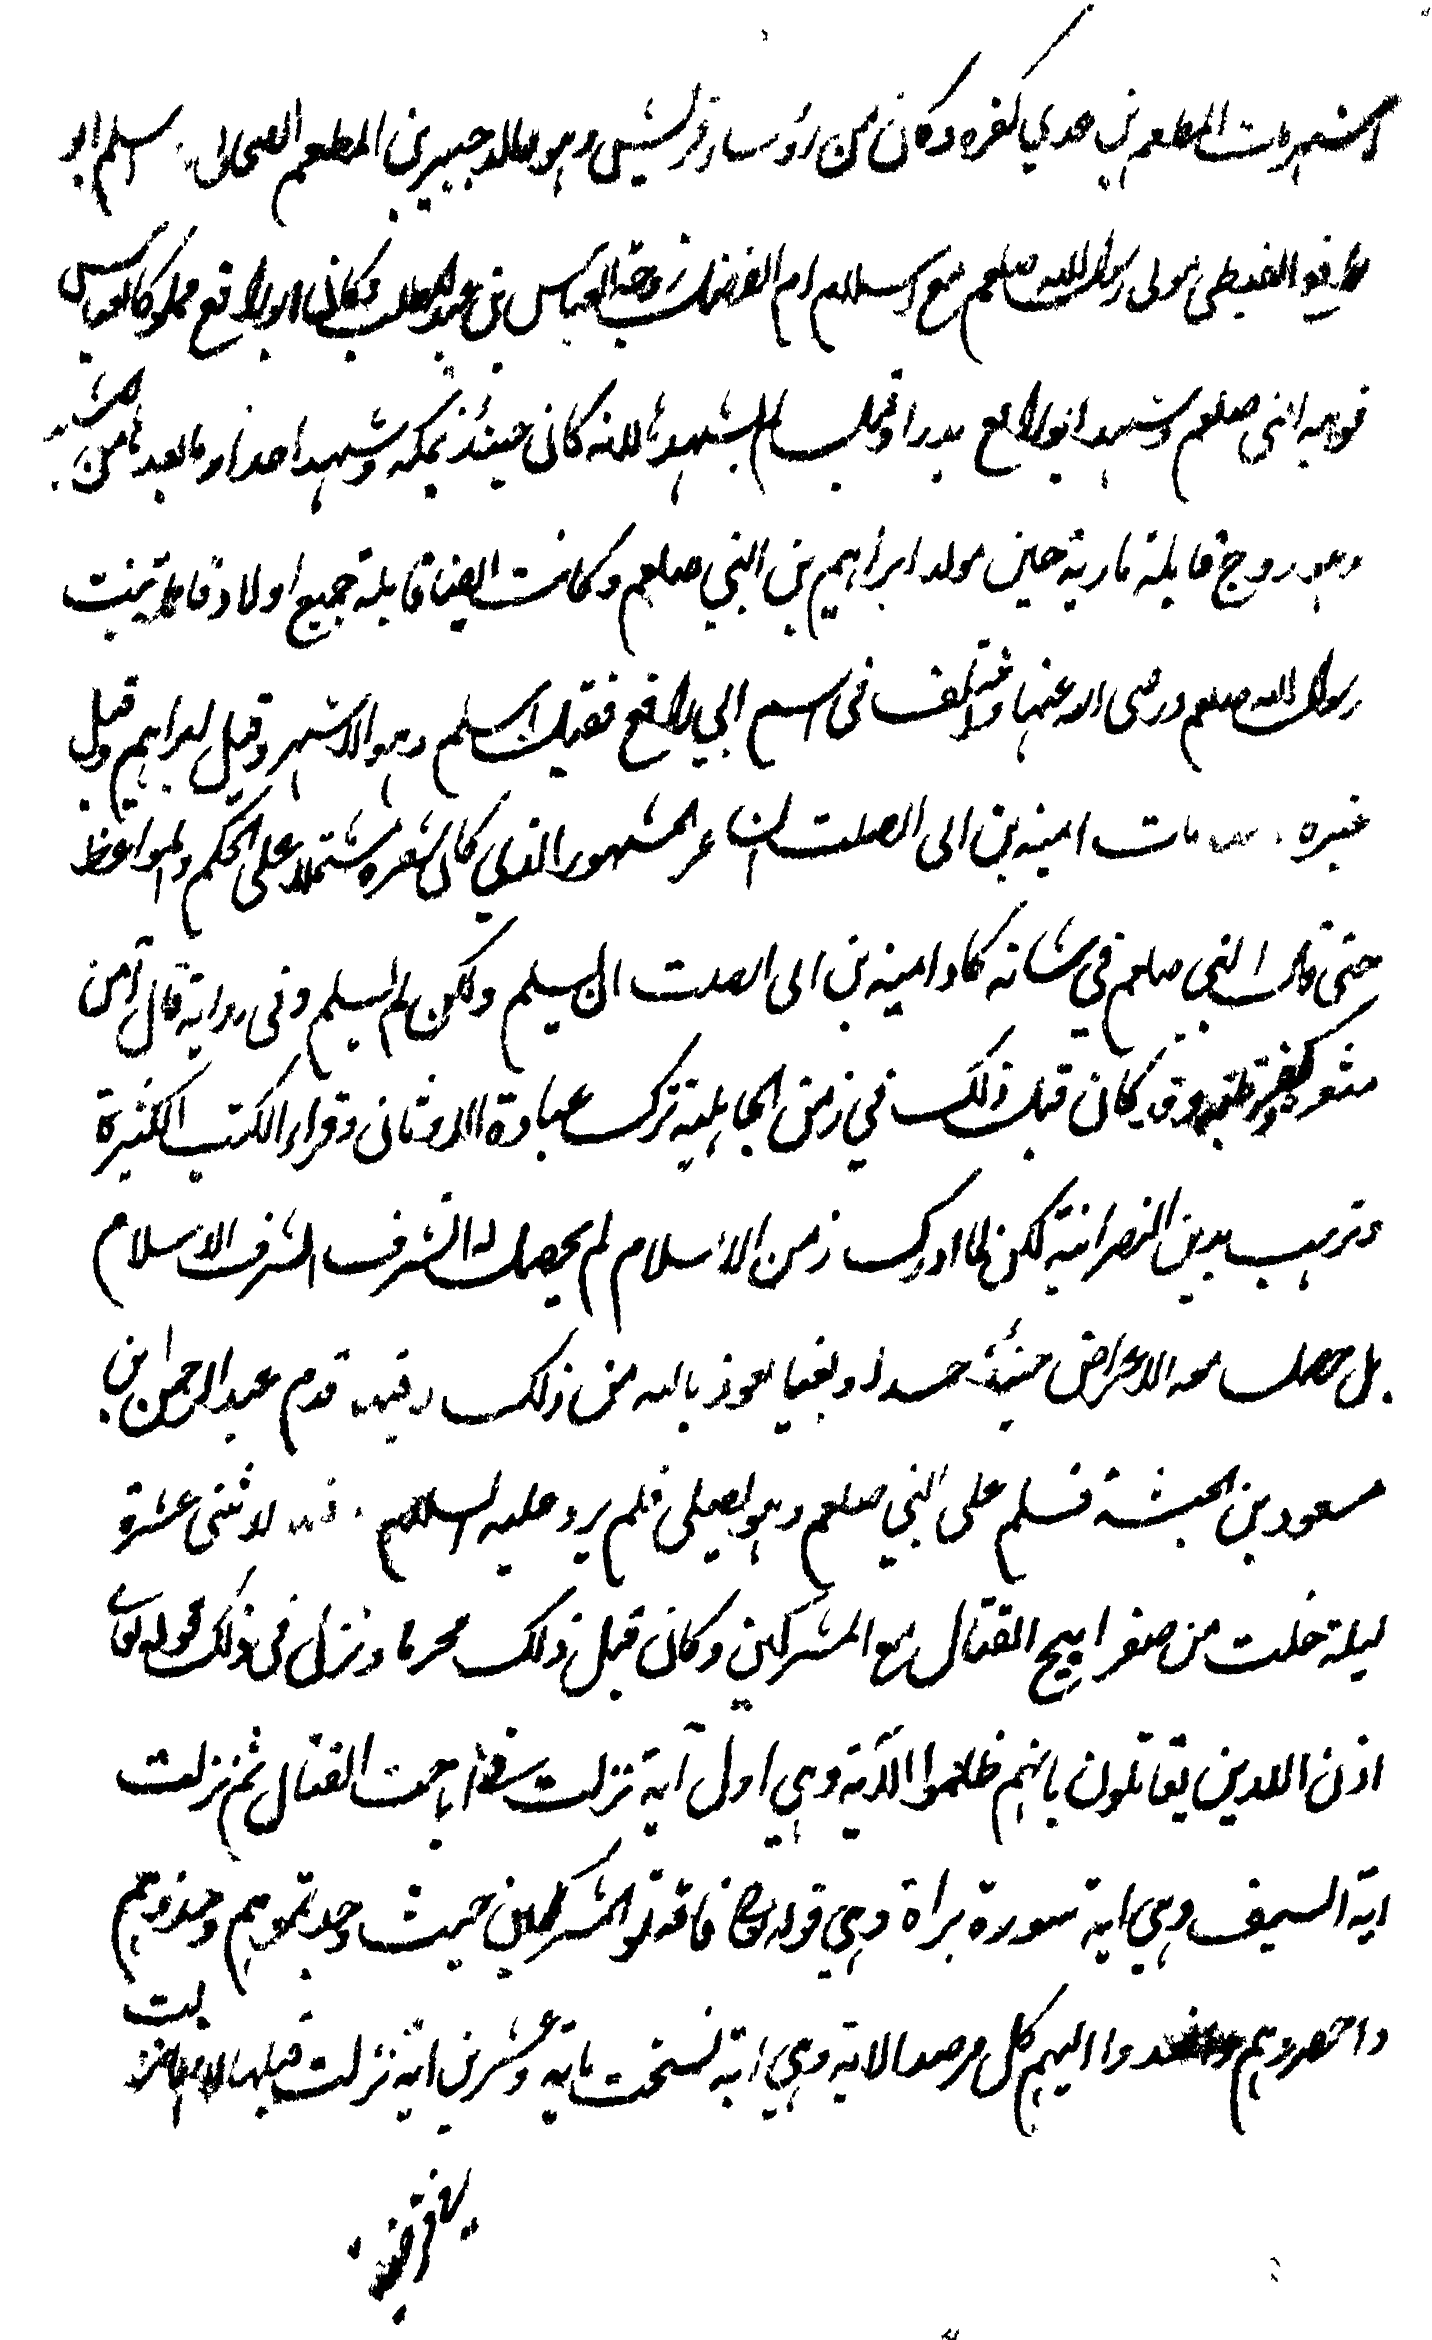 اشهر مات المطعم بن عدي كفره وكان من رؤساء قريش وهو والد جبير بن المطعم الصحابي اسلم ابو
رافع القبطي مولى رسول الله صلعم مع اسلام ام الفضل زوجة العباس بن عبد المطلب وكان ابو رافع مملوكا لعباس
فوهبه النبي صلعم وشهد ابو رافع بدرا وقيل لم يشهدها لانه كان حينئذ بمكة وشهد احدا وما بعدها من المشاهد
وهو زوج قابلة مارية حين مولد ابراهيم بن النبي صلعم وكانت ايضا قابلة جميع اولاد فاطمة بنت
رسول الله صلعم ورضى الله عنها واختلف فى اسم ابي رافع فقيل اسلم وهو الاشهر وقيل ابراهيم وقيل
غيره مات امية بن ابى الصلت الشاعر المشهور الذي كان شعره مشتملا على الحكم والمواعظ
حتى قال النبي صلعم في شانه كاد امية بن ابى الصلت ان يسلم ولكن لم يسلم وفى رواية قال آمن
شعره وكفر قلبه وقد كان قبل ذلك في زمن الجاهلية ترك عبادة الاوثان وقراء الكتب الكثيرة
وترهب بدين النصرانية لكن لما ادرك زمن الاسلام لم يحصل له التشرف بشرف الاسلام
بل حصل معه الاعراض حينئذ حسدا وبغيا نعوذ بالله من ذلك وفيها قدم عبد الرحمن ابن
مسعود من الحبشة فسلم على النبي صلعم وهو يصلى فلم يرد عليه السلام . لاثنتى عشرة
ليلة خلت من صفر ابيح القتال مع المشركين وكان قبل ذلك محرما ونزل فى ذلك قوله تعالى
اذن للذين يقاتلون بانهم ظلموا الآية وهي اول آية نزلت فى اباحت القتال ثم نزلت
اية السيف وهي اية سورة براة وهي قوله تعالى فاقتلوا المشركين حيث وجدتموهم وخذوهم
واحصروهم واقعدوا لهم كل مرصد الاية وهي اية نسخت ماية وعشرين اية نزلت قبلها